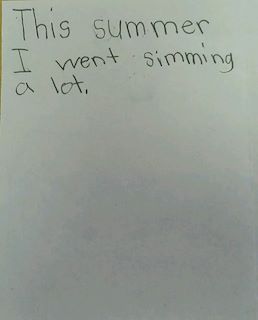 This summer
I went simming
a lot.